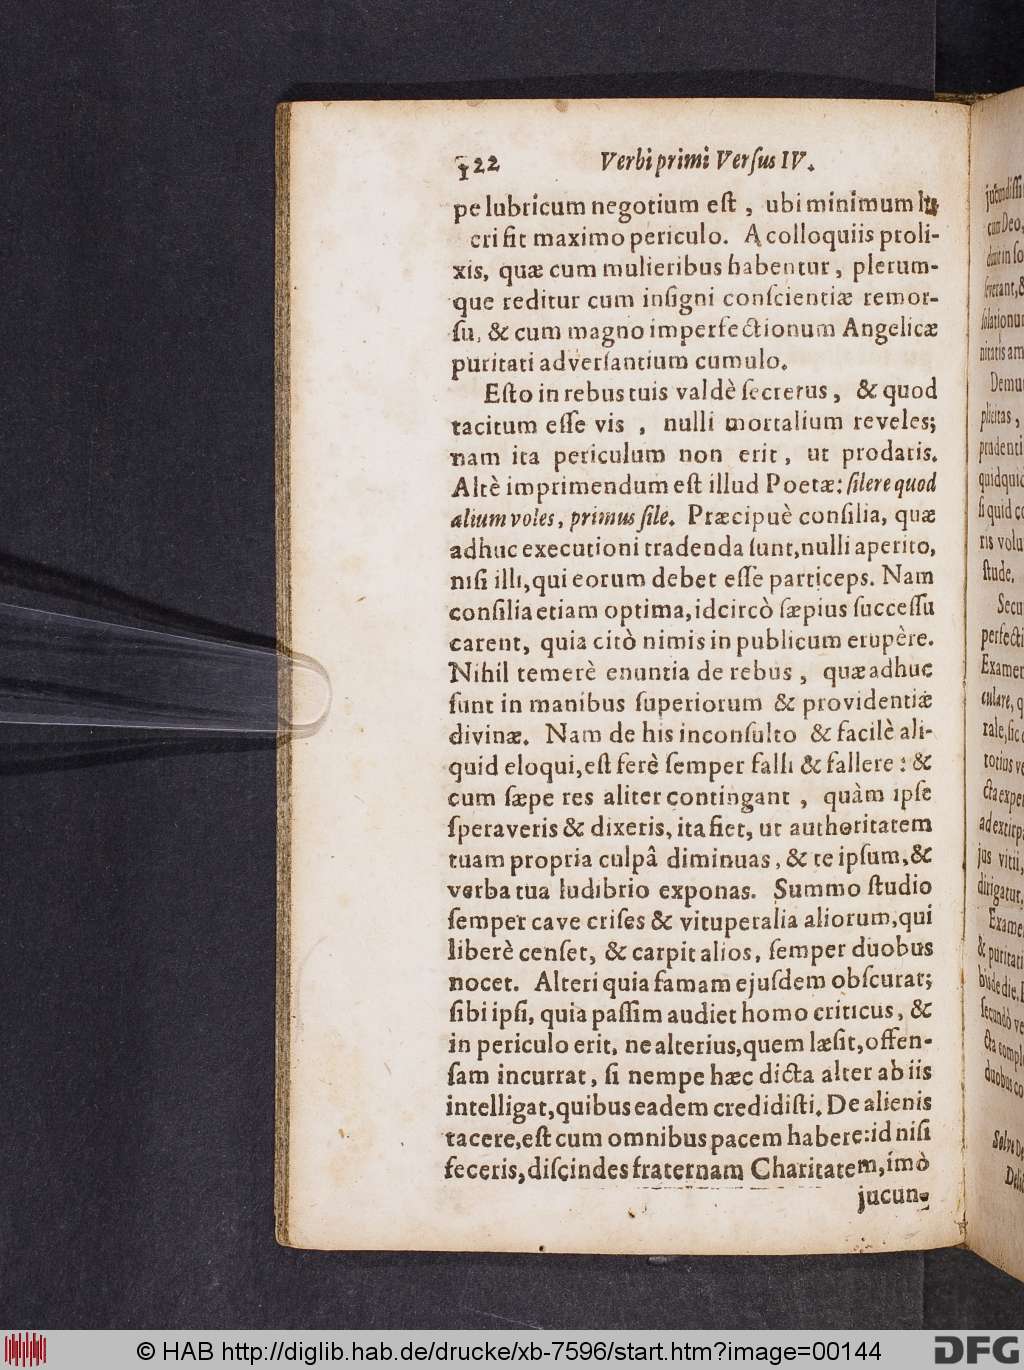 122 Verbi primi Verſus IV.
pe lubricum negotium eſt, ubi minimum lu-
cri fit maximo periculo. A colloquiis proli-
xis, quæ cum mulieribus habentur, plerum-
que reditur cum inſigni conſcientiæ remor-
ſu, & cum magno imperfectionum Angelicæ
puritati adverſantium cumulo.
Eſto in rebus tuis valdè ſecretus, & quod
tacitum eſſe vis, nulli mortalium reveles;
nam ita periculum non erit, ut prodatis.
Altè imprimendum eſt illud Poetæ: ſilere quod
alium voles, primus ſile. Præcipuè conſilia, quæ
adhuc executioni tradenda ſunt, nulli aperito,
niſi illi, qui eorum debet eſſe particeps. Nam
conſilia etiam optima, idcircò ſæpius ſucceſſu
carent, quia citò nimis in publicum erupère.
Nihil temerè enuntia de rebus, quæ adhuc
ſunt in manibus ſuperiorum & providentiæ
divinæ. Nam de his inconſulto & facilè ali-
quid eloqui, eſt ferè ſemper falli & fallere: &
cum ſæpe res aliter contingant, quàm ipſe
ſperaveris & dixeris, ita fiet, ut authoritatem
tuam propria culpâ diminuas, & te ipſum, &
verba tua ludibrio exponas. Summo ſtudio
ſemper cave criſes & vituperalia aliorum, qui
liberè cenſet, & carpit alios, ſemper duobus
nocet. Alteri quia famam ejuſdem obſcurat;
ſibi ipſi, quia paſſim audiet homo criticus, &
in periculo erit, ne alterius, quem læſit, offen-
ſam incurrat, ſi nempe hæc dicta alter ab iis
intelligat, quibus eadem credidiſti. De alienis
tacere, eſt cum omnibus pacem habere: id niſi
feceris, diſcindes fraternam Charitatem, imò
jucun-
jucundiſſi
cum Deo,
nitatis am
Demu
plicitas,
prudenti
quidquid
ſi quid co
ris volu
ſtude.
Secu
perfecti
Examen
culare, q
rale, ſic
totius ve
cta expe
ad extirpa
jus vitii,
dirigatur,
Exame
& puritati
ſecundò ve
cta comple
duobus co
Salve De
© HAB http://diglib.hab.de/drucke/xb-7596/start.htm?image=00144
DFG